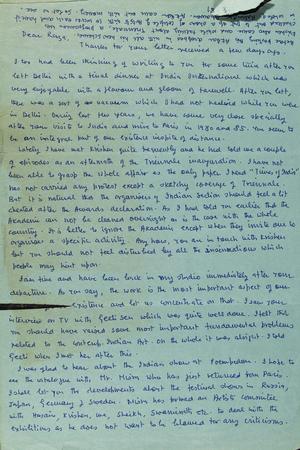 Dear Raza,
Thanks for your letter received a few days ago.
I too had been thinking of writing to you for some time after you
left Delhi with a final dinner at India International which was
very enjoyable with a flavour and gloom of farewell. After you left,
there was a sort of a vacuum which I had not realised while you were
in Delhi. During last few years, we have come very close specially
after your visit to India and mine to Paris in 1970 and 85. You seem to
be an integral part of our existence inspite of distance.
Lately I have met Krishen quite frequently and he had told me a couple
of episodes as an aftermath of the Triennale inauguration. I have not
been able to grasp the whole affair as the only paper I read "Times of India"
has not carried any protest except a sketchy coverage of Triennale.
But it is natural that the organisers of Indian section should feel a bit
cheated after the Awards declaration. As I had told you earlier that the
Academi can not be cleaned overnight as is the case with the whole
country. It is better to ignore the Academi except when they invite one to
organise a specific activity. Any how, you are in touch with Krishen
but you should not feel disturbed by all the insinuations which
people may hint upon.
I am fine and have been back in my studio immediately after your
departure. As you say, the work is the most important aspect of our
existence and let us concentrate on that. I saw your
interview on TV with Geeti Sen which was quite well done. I felt that
you should have raised some most important fundamental problems
related to the contemp. Indian Art. On the whole it was alright. I told
Geeti when I met her after this.
I was glad to hear about the Indian show at Pompidou. I hope to
see the catalogue with Mr. Misra who has just returned from Paris.
I shall let you the developments about the festival shows in Russia,
Japan, Germany & Sweden. Misra has formed an Artists Committee
with Husain, Krishen, me, Sheikh, Swaminathan etc. to deal with the
exhibitions as he does not want to be blamed for any criticisms.